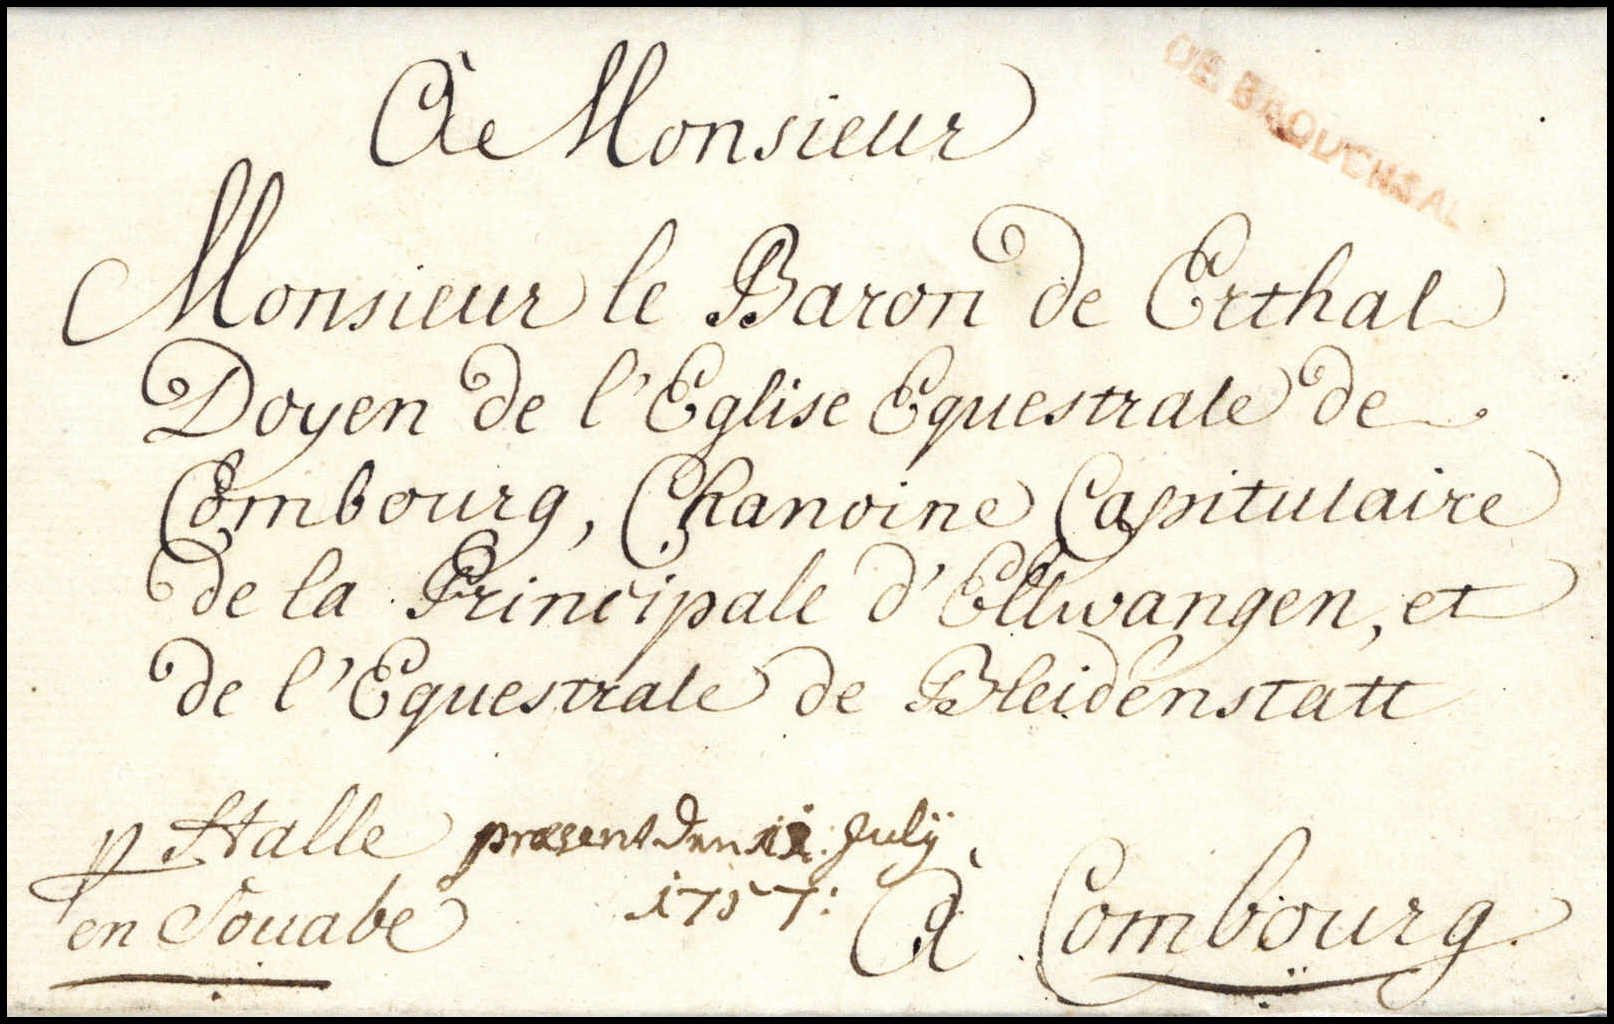 DE BROUCHSAL
À Monsieur
Monsieur le Baron de Erthal
Doyen de l'Eglise Equestrale de
Combourg, Chanoine Capitulaire
de la Principale d'Ellwangen, et
de l'Equestrale de Bleidenstatt
p Halle
en Souabe
præsent den 11: Julÿ
1757:
à Combourg.